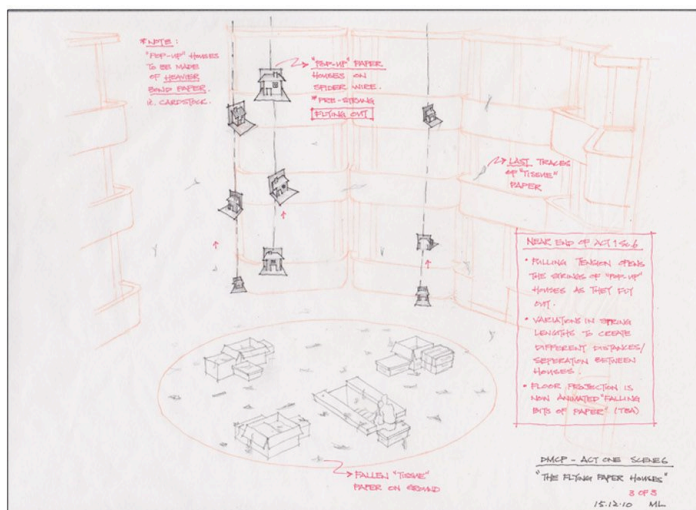 * NOTE :
"POP-UP" HOUSES
TO BE MADE
OF HEAVIER
BOND PAPER.
ie. CARDSTOCK.
"POP-UP" PAPER
HOUSES ON
SPIDER WIRE.
* PRE-STRUNG
FLYING OUT
LAST TRACES
OF "TISSUE"
PAPER
NEAR END OF ACT 1 Sc.6
• PULLING TENSION OPENS
THE STRINGS OF "POP UP"
HOUSES AS THEY FLY
OUT.
• VARIATIONS IN STRING
LENGTHS TO CREATE
DIFFERENT DISTANCES/
SEPERATION BETWEEN
HOUSES.
• FLOOR PROJECTION IS
NON ANIMATED "FALLING
BITS OF PAPER" (TBA)
FALLEN "TISSUE"
PAPER ON GROUND
DMCP - ACT ONE SCENE 6
"THE FLYING PAPER HOUSES"
3 OF 3
15.12.10 ML